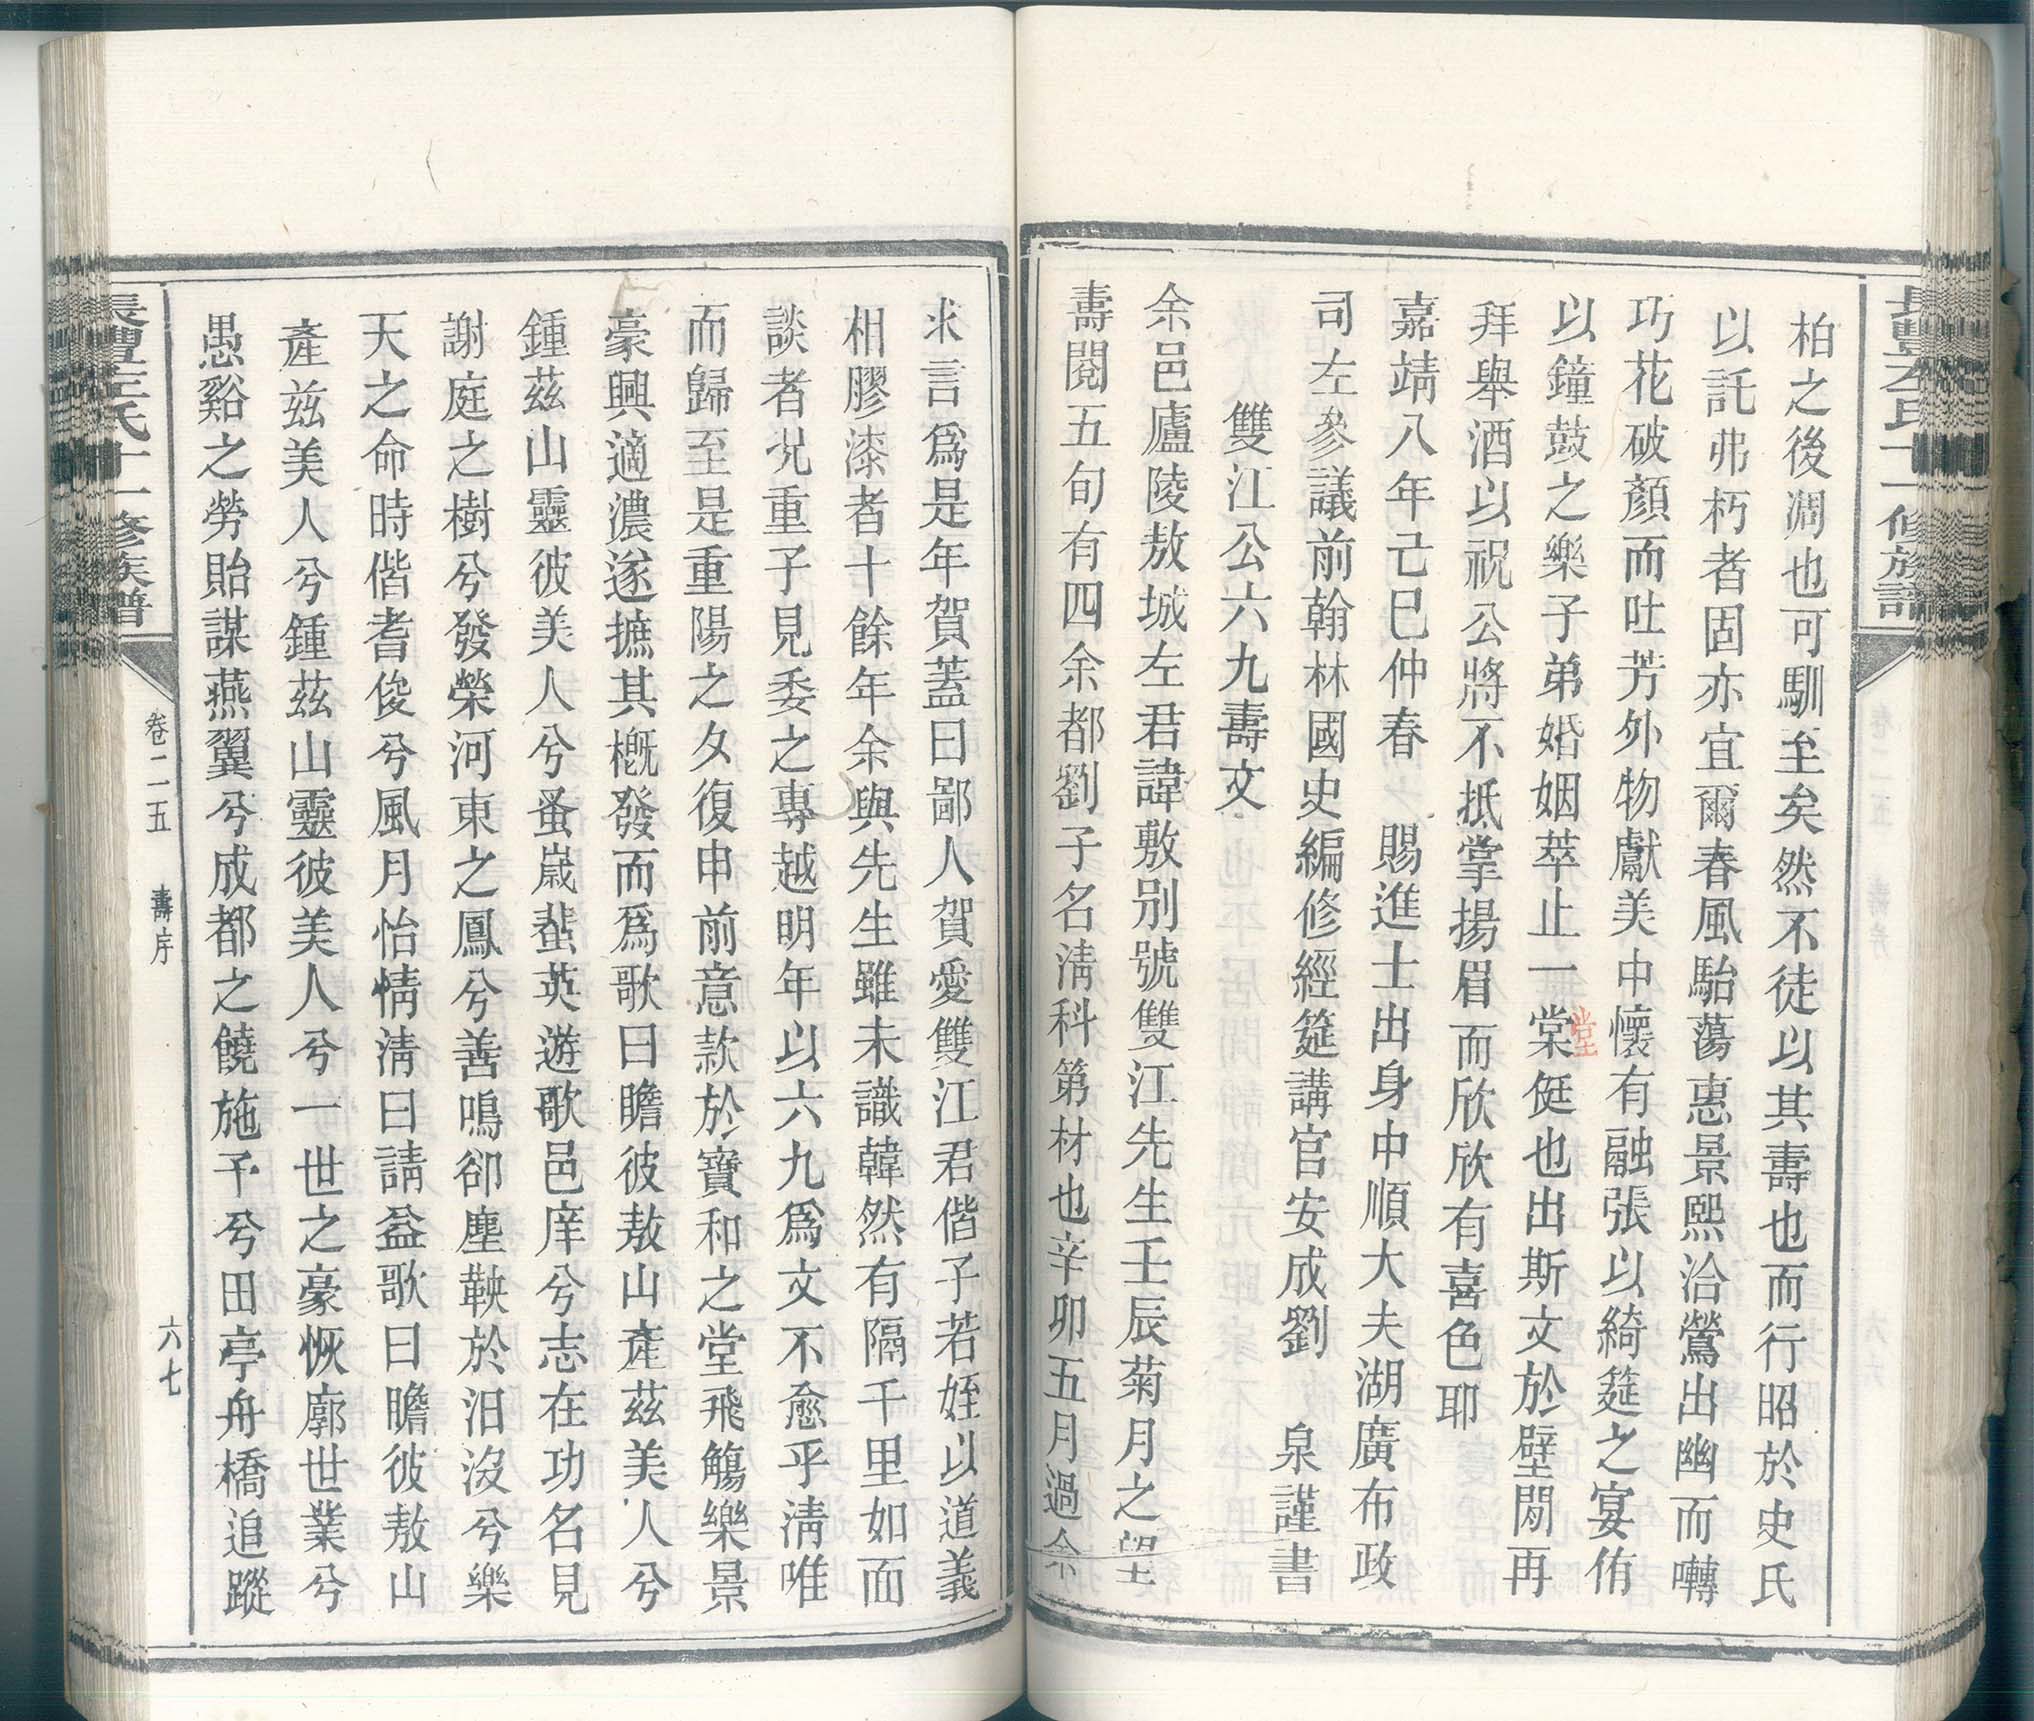 柏之後凋也可馴至矣然不徒以其壽也而行昭於史氏
以託弗朽者固亦宜爾春風駘蕩惠景熙洽鶯出幽而囀
巧花破顏而吐芳外物獻美中懷有融張以綺筵之宴侑
以鐘鼓之樂子弟婚姻萃止一棠侹也出斯文於壁閒再
堂
拜舉酒以祝公將不抵掌揚眉而欣欣有喜色耶
嘉靖八年己巳仲春 賜進士出身中順大夫湖廣布政
司左參議前翰林國史編修經筵講官安成劉 泉謹書
雙江公六九壽文
余邑廬陵敖城左君諱敷别號雙江先生壬辰菊月之望
壽閱五旬有四余都劉子名淸科第材也辛卯五月過余
求言爲是年賀蓋曰鄙人賀愛雙江君偕子若姪以道義
相膠漆者十餘年余與先生雖未識韓然有隔千里如面
談者况重子見委之專越明年以六九爲文不愈乎淸唯
而歸至是重陽之夕復申前意款於寶和之堂飛觴樂景
豪興適濃遂摭其槪發而爲歌曰瞻彼敖山產茲美人兮
鍾茲山靈彼美人兮蚤歲蜚英遊歌邑庠兮志在功名見
謝庭之樹兮發榮河東之鳳兮善鳴卻塵鞅於汨沒兮樂
天之命時偕耆俊兮風月怡情淸曰請益歌曰瞻彼敖山
產玆美人兮鍾茲山靈彼美人兮一世之豪恢廓世業兮
愚谿之勞貽謀燕翼兮成都之饒施予兮田亭舟橋追蹤
長豐左氏十一修族譜
卷二五 壽序
六七